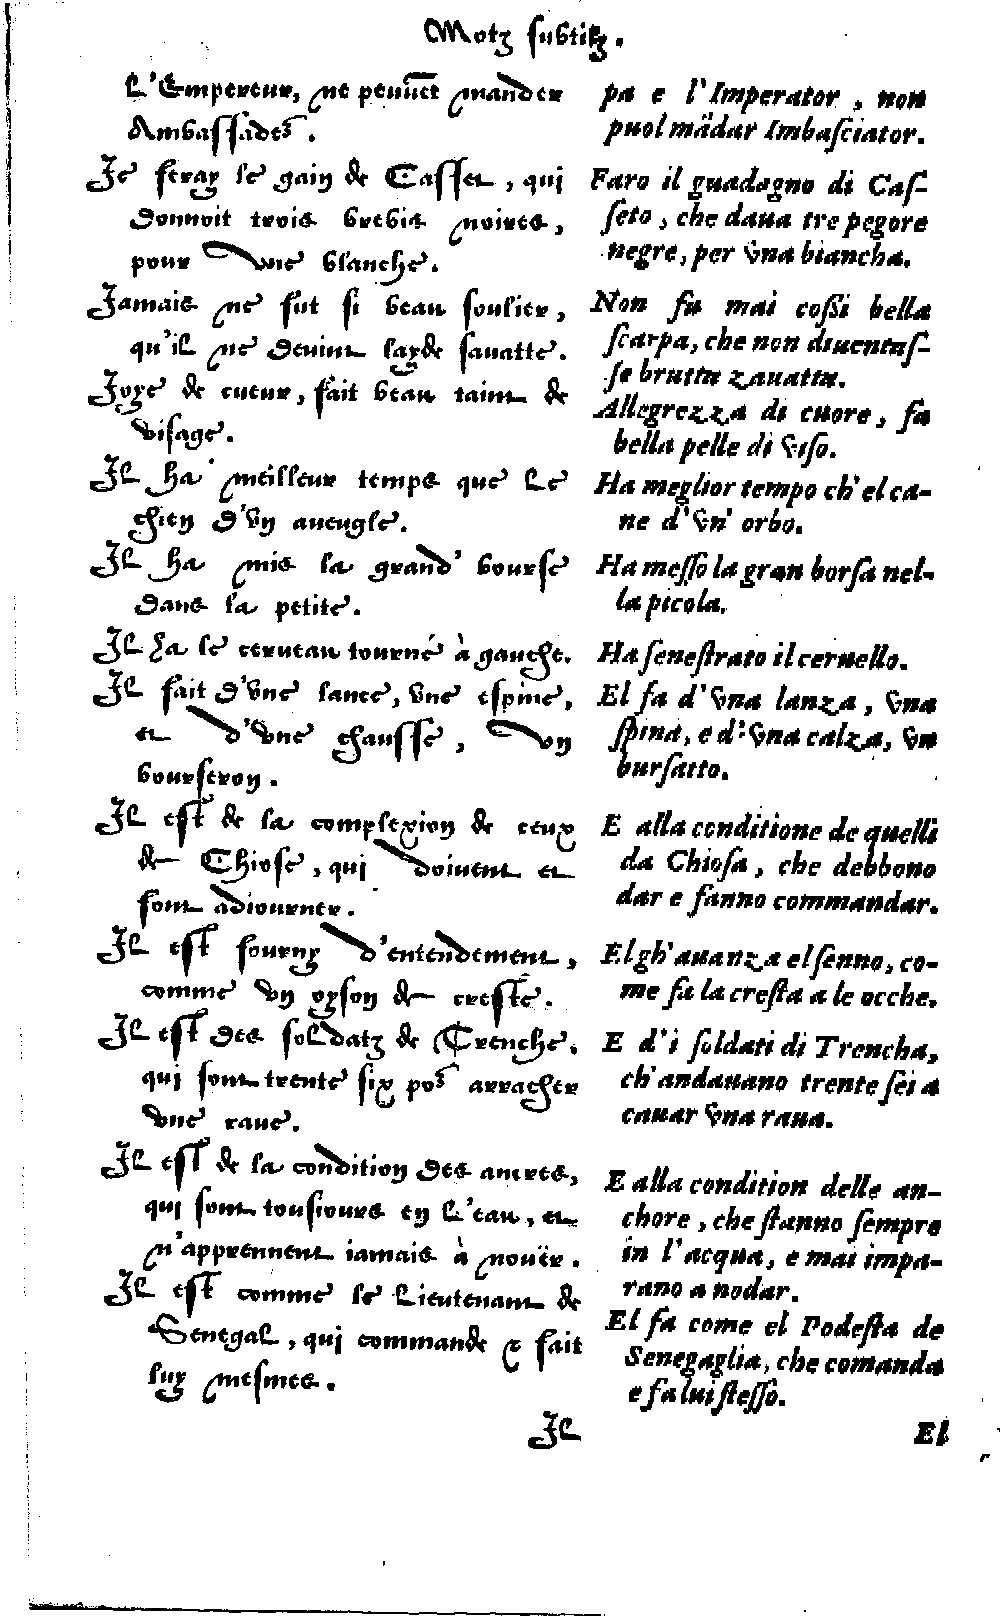 Motz subtilz.
L'Empereur, ne peuuẽt mander
Ambassades.
Je feray le gain de Casset, qui
donnoit trois brebis noires,
pour vne blanche.
Jamais ne fut si beau soulier,
qu'il ne deuint layde sauatte.
Joye de cueur, fait beau taint de
visage.
Il ha meilleur temps que le
chien d'vn aueugle.
Il ha mis la grand' bourse
dans la petite.
Il ha le cerueau tourné à gauche.
Il fait d'vne lance, vne espine,
et d'vne chausse, vn
bourseron.
Il est de la complexion de ceux
de Chiose, qui doiuent et
font adiourner.
Il est fourny d'entendement,
comme vn oyson de creste.
Il est des soldatz de Trenche,
qui sont trente six pos arracher
vne raue.
Il est de la condition des ancres,
qui sont tousiours en l'eau, et
n'apprennent iamais à nouër.
Il est comme le Lieutenant de
Senegal, qui commande & fait
luy mesmes.
Il
pa e l'Imperator, non
puol mãdar Imbasciator.
Faro il guadagno di Cas-
seto, che daua tre pegore
negre, per vna biancha.
Non fu mai cossi bella
scarpa, che non diuentas-
se brutta zauatta.
Allegrezza di cuore, fa
bella pelle di viso.
Ha meglior tempo ch'el ca-
ne d'vn' orbo.
Ha messo la gran borsa nel-
la picola.
Ha senestrato il ceruello.
El fa d'vna lanza, vna
spina, e d'vna calza, vn
bursatto.
E alla conditione de quelli
da Chiosa, che debbono
dar e fanno commandar.
El gh'auanza el senno, co-
me fa la cresta a le ocche.
E d'i soldati di Trencha,
ch'andauano trente sei a
cauar vna raua.
E alla condition delle an-
chore, che stanno sempre
in l'acqua, e mai impa-
rano a nodar.
El fa come el Podesta de
Senegaglia, che comanda
e fa lui stesso.
El